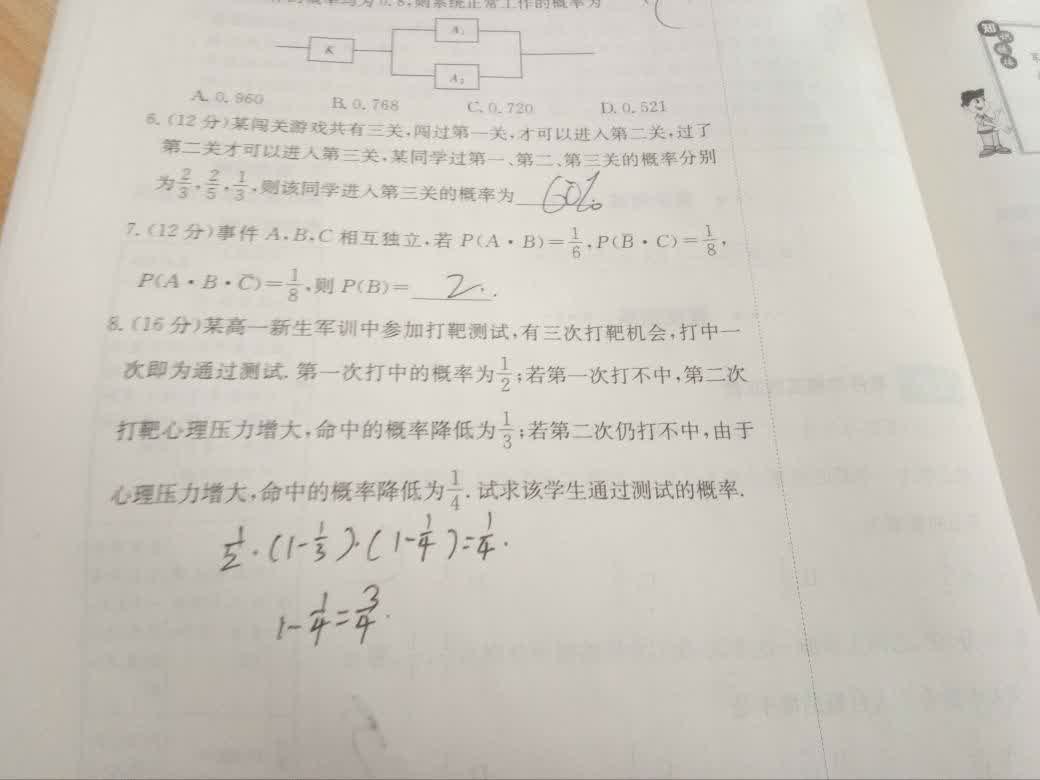 的概率均为0.8,则系统正常工作的概率为
K
A₁
A₂
A. 0.960 B. 0.768 C. 0.720 D. 0.521
6. (12分)某闯关游戏共有三关,闯过第一关,才可以进入第二关,过了
第二关才可以进入第三关,某同学过第一、第二、第三关的概率分别
为2/3,2/5,1/3,则该同学进入第三关的概率为 60%.
7. (12分)事件A,B,C相互独立,若P(A·B)=1/6,P(B̄·C)=1/8,
P(A·B·C̄)=1/8,则P(B)= 2.
8. (16分)某高一新生军训中参加打靶测试,有三次打靶机会,打中一
次即为通过测试.第一次打中的概率为1/2;若第一次打不中,第二次
打靶心理压力增大,命中的概率降低为1/3;若第二次仍打不中,由于
心理压力增大,命中的概率降低为1/4.试求该学生通过测试的概率.
1/2·(1-1/3)·(1-1/4)=1/4.
1-1/4=3/4.
知